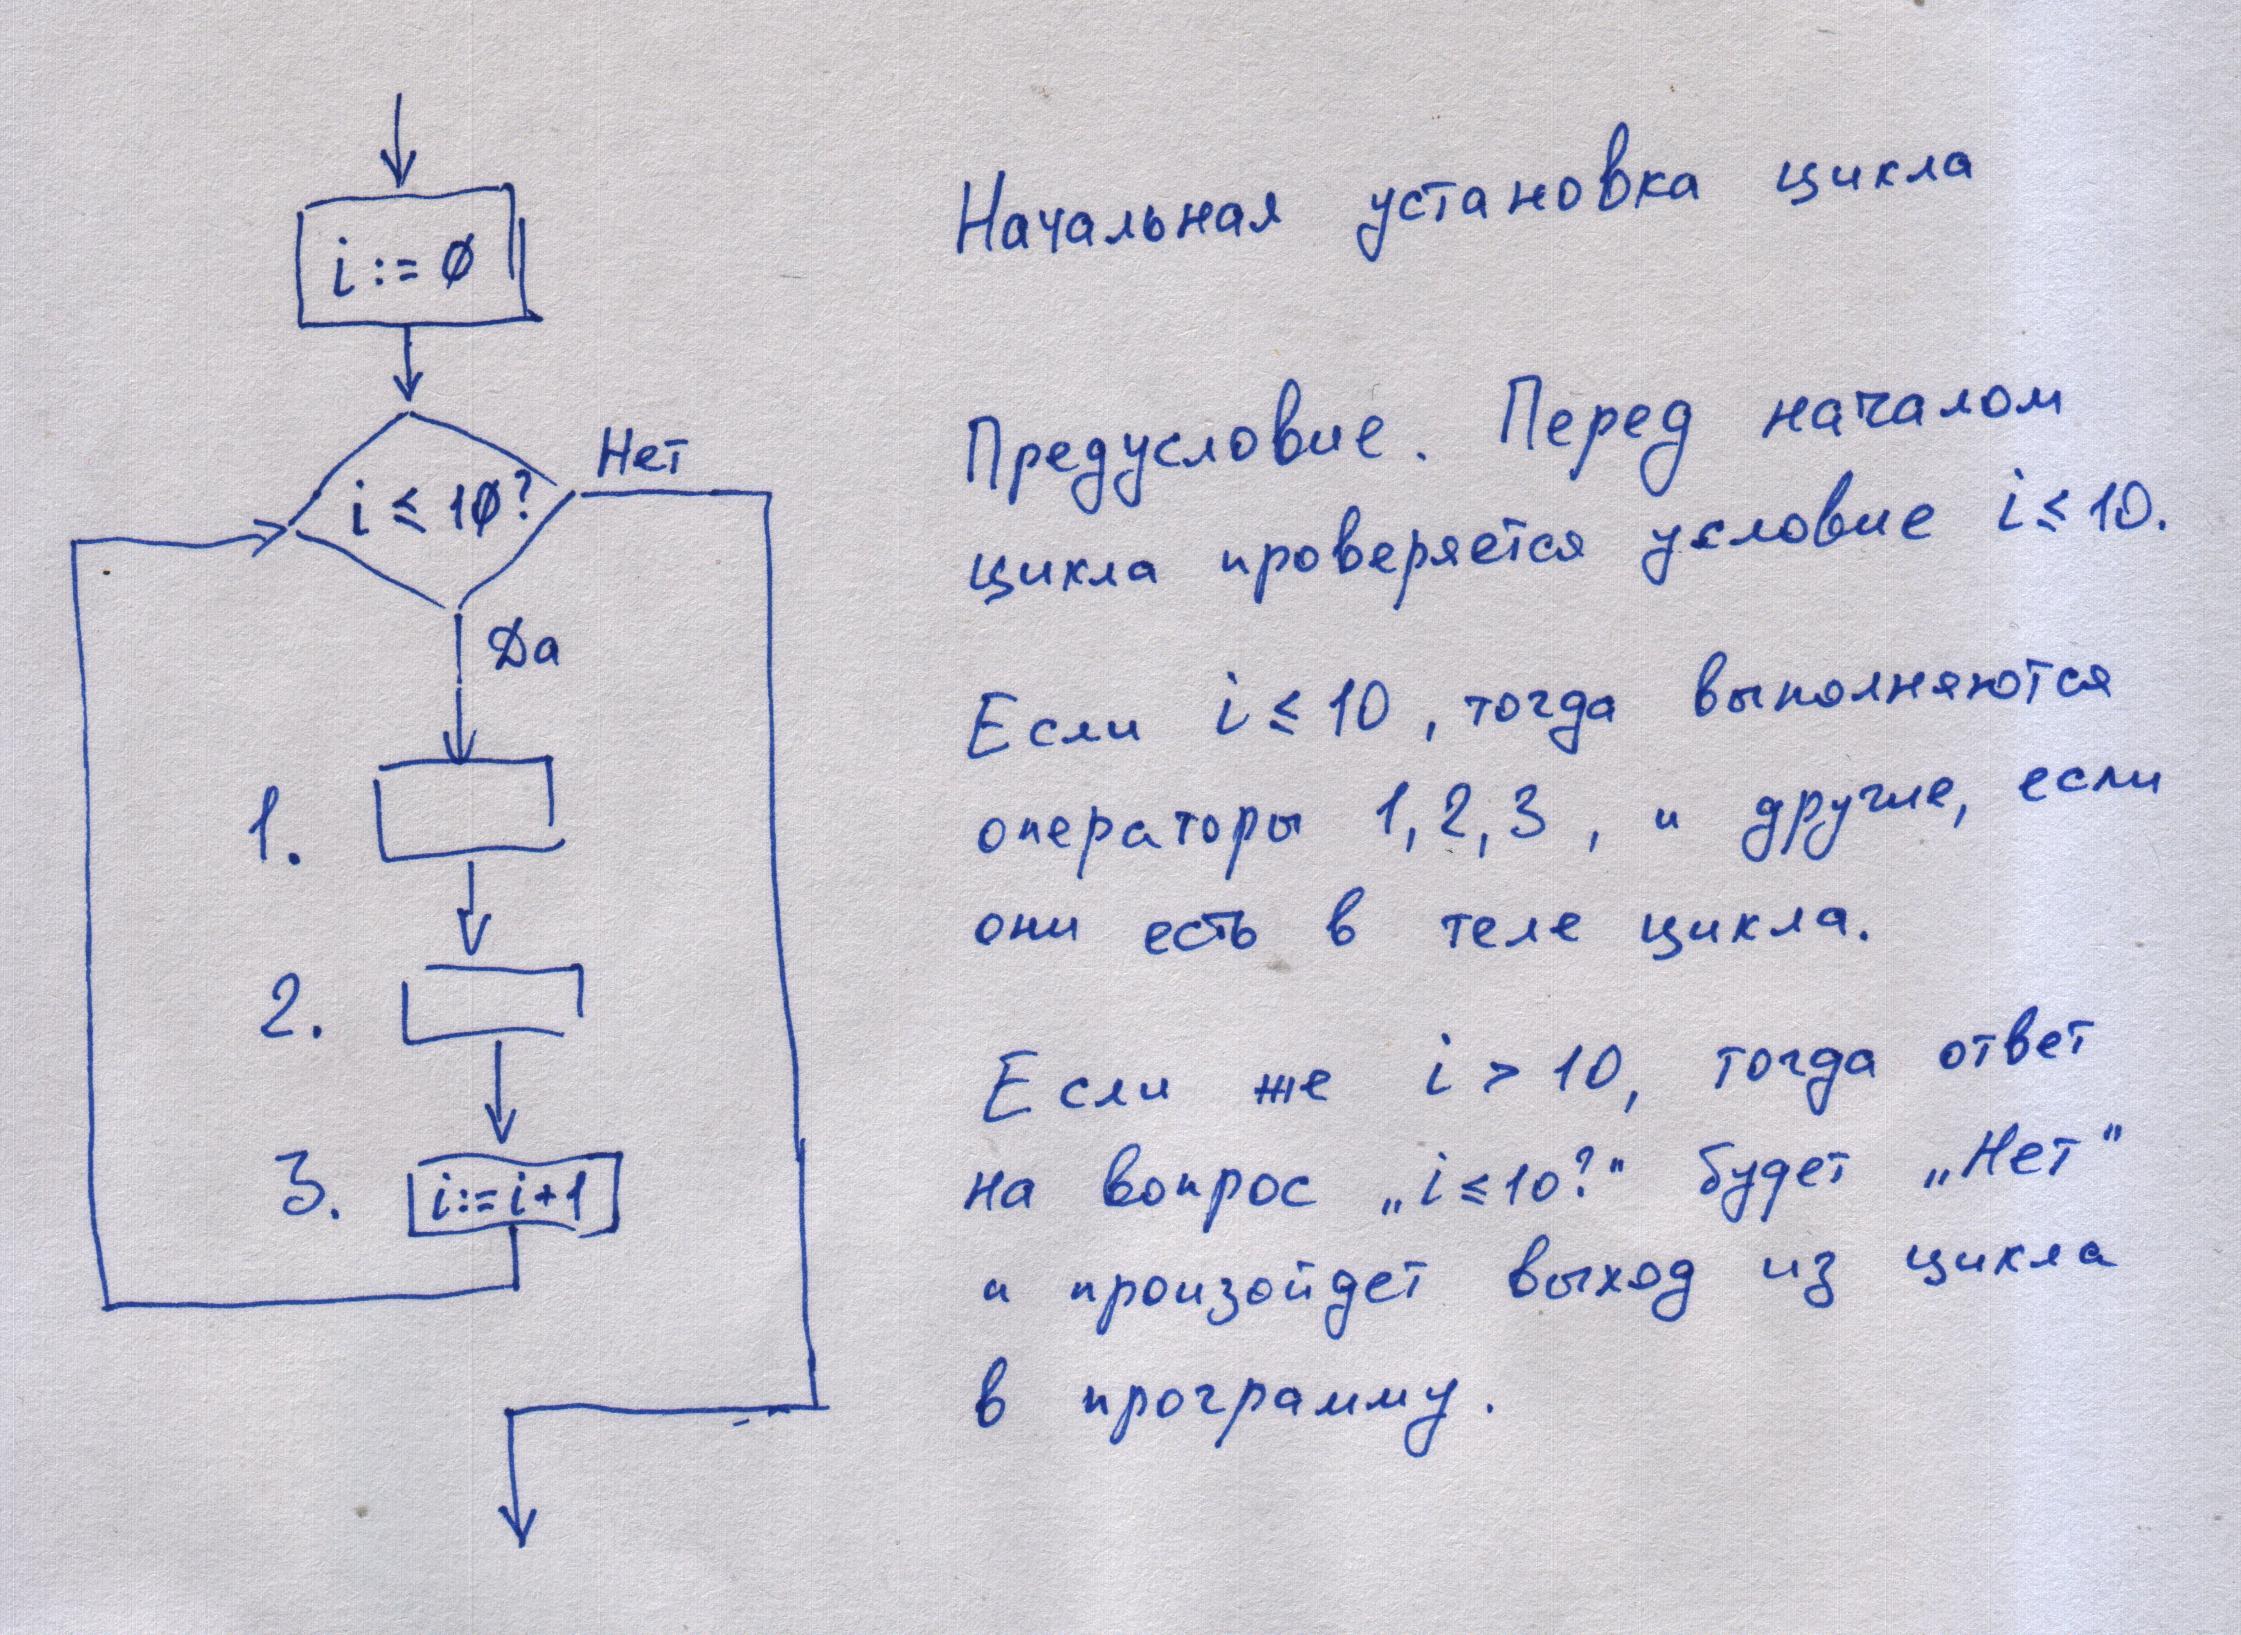 i := 0
i ≤ 10?
Нет
Да
1.
2.
3.
i:=i+1
Начальная установка цикла
Предусловие. Перед началом
цикла проверяется условие i ≤ 10.
Если i ≤ 10, тогда выполняются
операторы 1, 2, 3, и другие, если
они есть в теле цикла.
Если же i > 10, тогда ответ
на вопрос „i ≤ 10?" будет „Нет"
и произойдет выход из цикла
в программу.